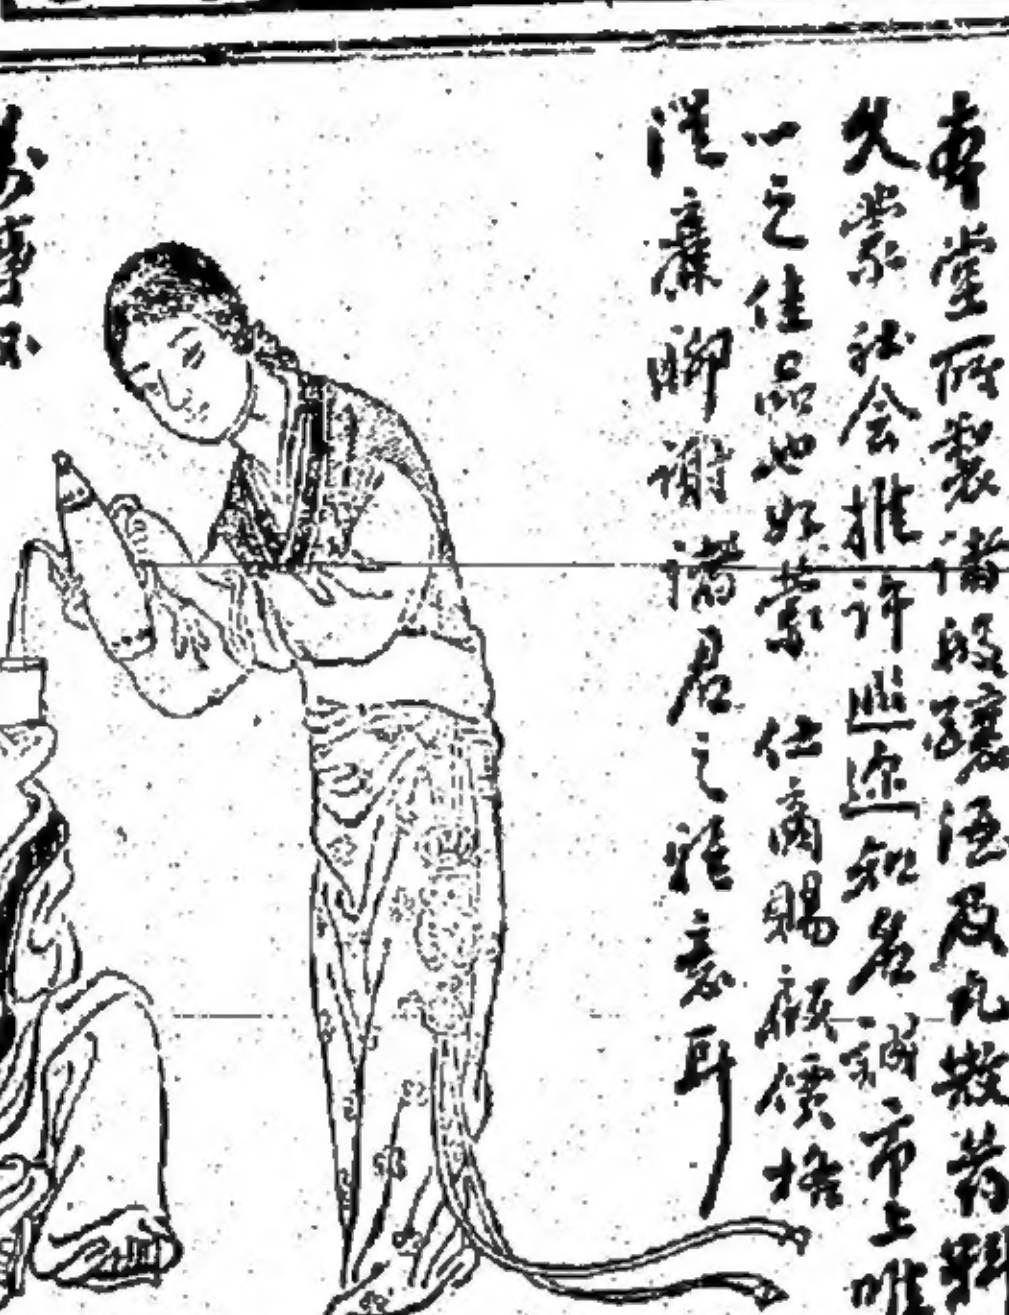 本堂所製諸般釀酒及丸散药料
久蒙社会推許遐迩知名誠市上唯
一之佳品也如蒙 仕商賜顧價格
從廉聊謝諸君之雅意耳